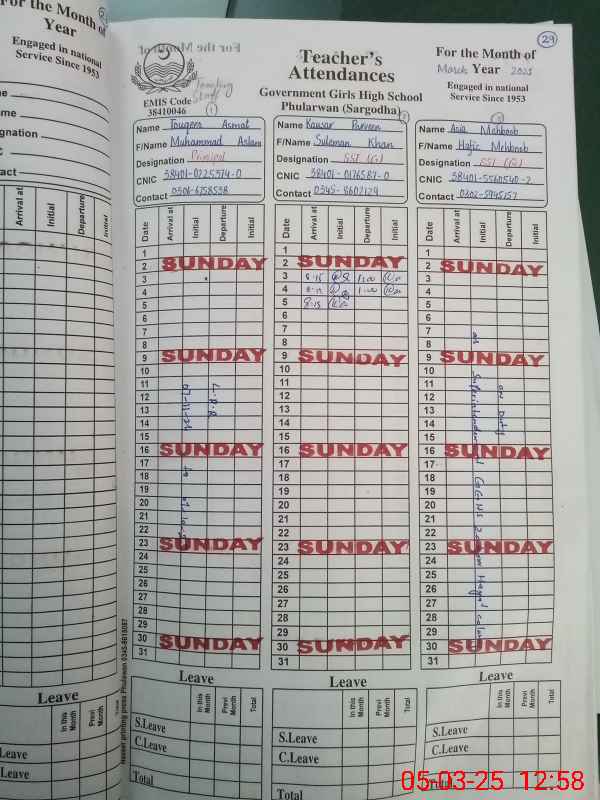 For the Month of
Year
Engaged in national
Service Since 1953
Arrival at
Initial
Departure
Initial
Leave
In this Month
Previ Month
Total
Leave
Leave
For the Month of
29
Teacher's
Attendances
Government Girls High School
Phularwan (Sargodha)
For the Month of
March Year 2025
Engaged in national
Service Since 1953
Teaching
Staff
EMIS Code
38410046
1
Name Asmat
F/Name Muhammad Aslam
Designation Principal
CNIC 38401-0225974-0
Contact 0306-6758538
Name Kausar Parveen
F/Name Suleman Khan
Designation SST (G)
CNIC 38401-0176587-0
Contact 0345-8602129
Name Asia Mehboob
F/Name Hafiz Mehboob
Designation SST (G)
CNIC 38401-5560540-2
Contact
Date Arrival at Initial Departure Initial
1
2 SUNDAY
3
4
5
6
7
8
9 SUNDAY
10
11
12
13
14
15
16 SUNDAY
17
18
19
20
21
22
23 SUNDAY
24
25
26
27
28
29
30 SUNDAY
31
L.P.R
to
Date Arrival at Initial Departure Initial
1
2 SUNDAY
3 8-15 1:00
4 8-15 1:00
5 8-15
6
7
8
9 SUNDAY
10
11
12
13
14
15
16 SUNDAY
17
18
19
20
21
22
23 SUNDAY
24
25
26
27
28
29
30 SUNDAY
31
Date Arrival at Initial Departure Initial
1
2 SUNDAY
3
4
5
6
7
8
9 SUNDAY
10
11
12
13
14
15
16 SUNDAY
17
18
19
20
21
22
23 SUNDAY
24
25
26
27
28
29
30 SUNDAY
31
on Duty
as Superintendent
Leave
In this Month Previ Month Total
S.Leave
C.Leave
Total
Leave
In this Month Previ Month Total
S.Leave
C.Leave
Total
Leave
In this Month Previ Month Total
S.Leave
C.Leave
Total
05-03-25 12:58